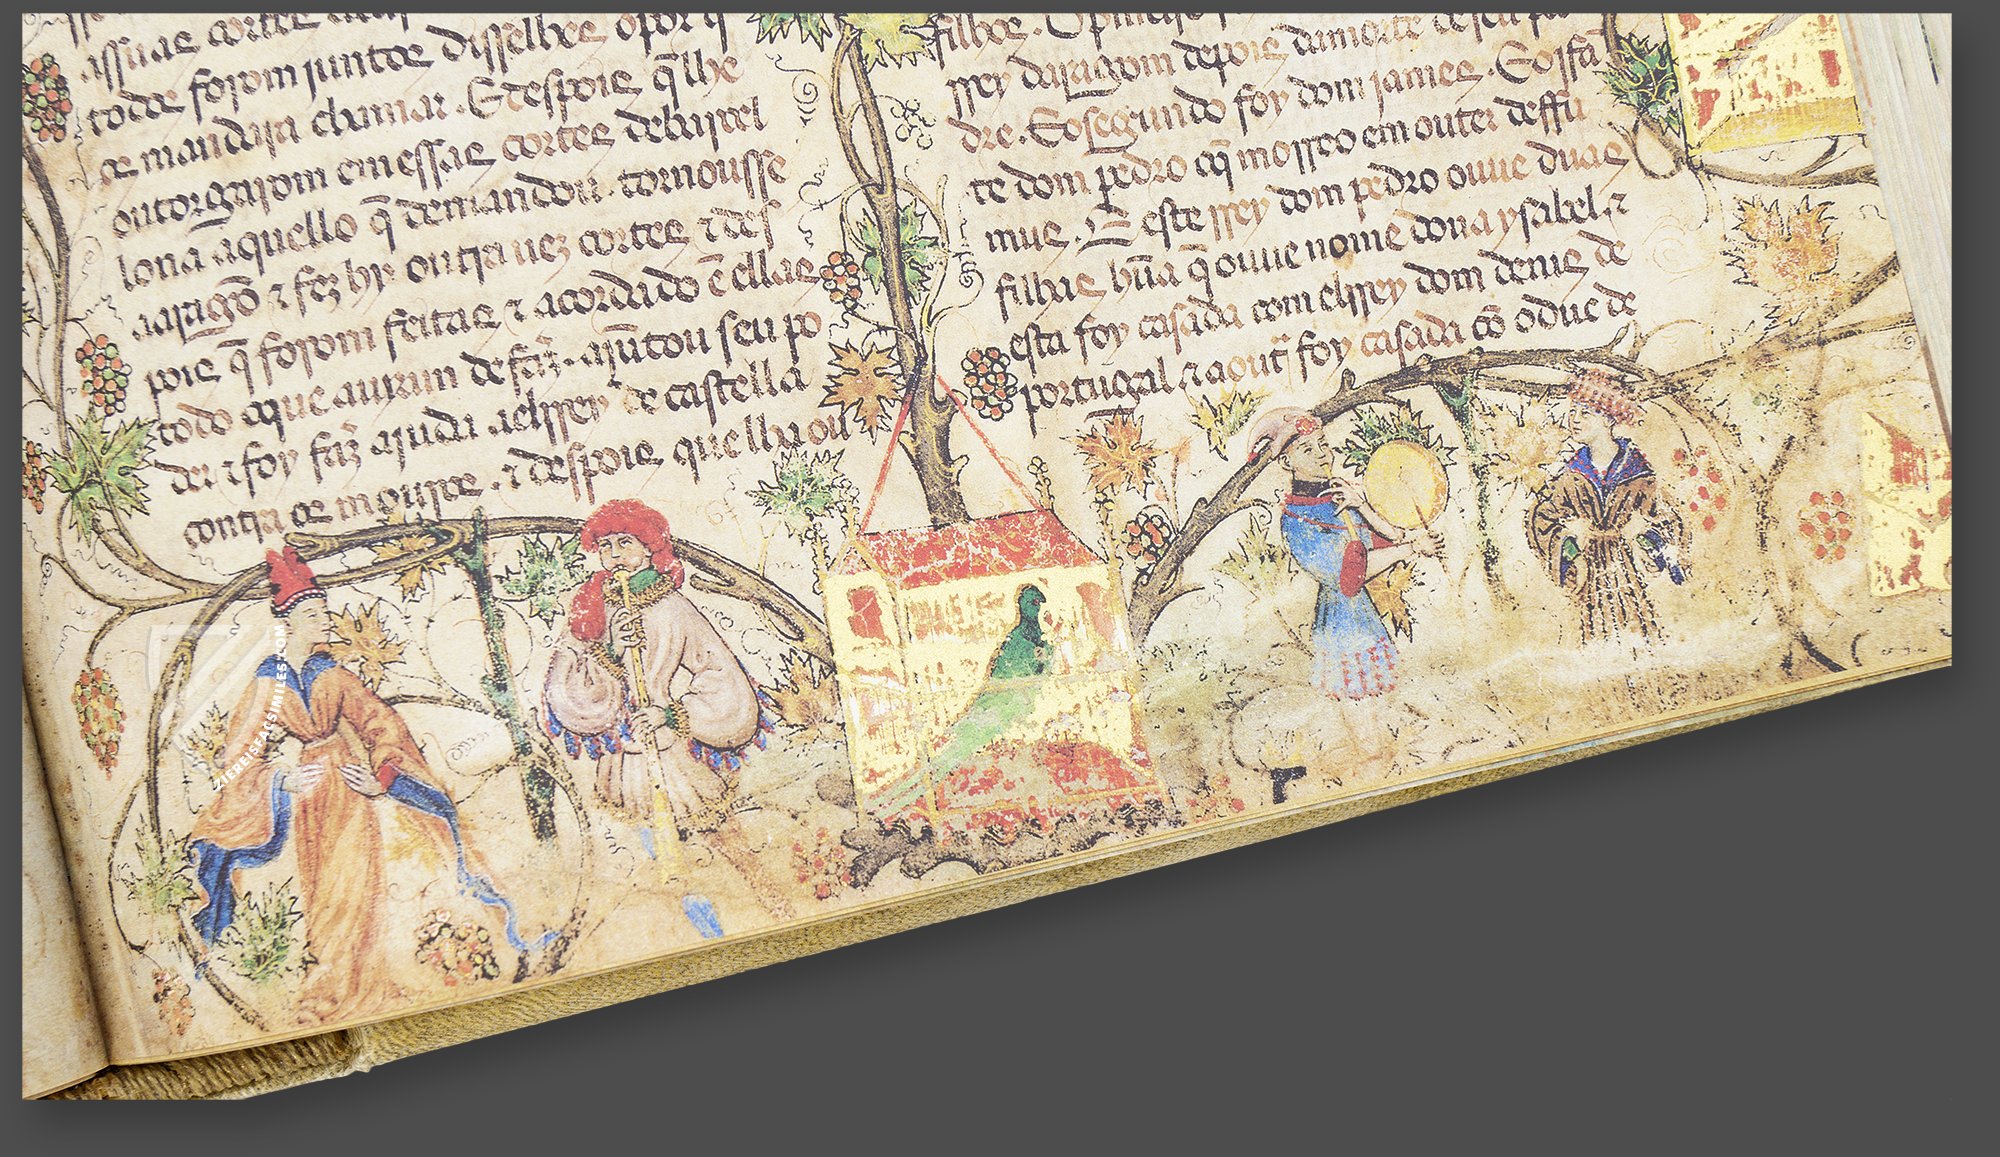 assuas cortes
todos forom juntos disselhes opor q̄
os mandara chamar. E despois q̄ lhe
outorgarom em essas cortes de burrel
lona aquello q̄ demandou. tornousse
aaragō ⁊ fez hy outra uez cortes ⁊ des
pois q̄ forom feitas ⁊ acordado ē ellas
todo o que auiam de faz̄. ajūtou seu po
der ⁊ foy faz̄ ajuda aelrrey de castella
contra os mouros. ⁊ despois que lha ou
filhos. O primeiro
rrey daragom depois da morte de seu pa
dre. Eo segundo foy dom james. Eo
te dom pedro q̄ morreo em outer deffu
mus. E este rrey dom pedro ouue duas
filhas hūa q̄ ouue nome dona ysabel ⁊
esta foy casada com elrrey dom denis de
portugal ⁊ a outͣ foy casada cō o duc de
ZIEREIS FACSIMILES.COM